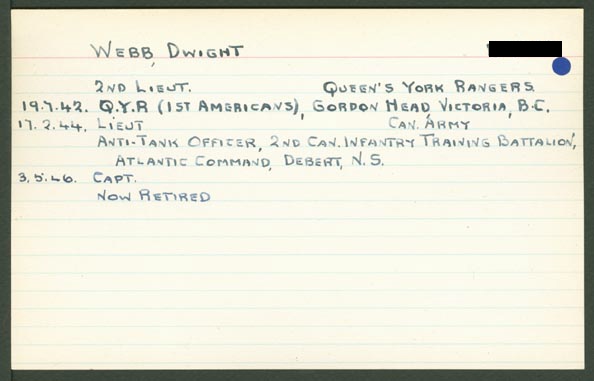 WEBB, DWIGHT
2ND LIEUT. QUEEN'S YORK RANGERS.
19.7.42. Q.Y.R (1ST AMERICANS), GORDON HEAD, VICTORIA, B.C.
17.2.44. LIEUT CAN. ARMY
ANTI-TANK OFFICER, 2ND CAN. INFANTRY TRAINING BATTALION,
ATLANTIC COMMAND, DEBERT, N.S.
3.5.46. CAPT.
NOW RETIRED